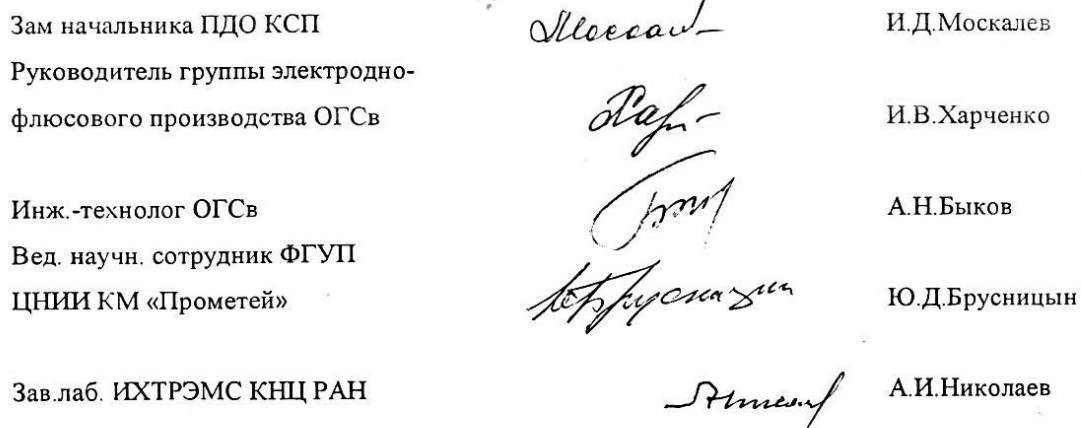 Зам начальника ПДО КСП И.Д.Москалев
Руководитель группы электродно-
флюсового производства ОГСв И.В.Харченко
Инж.-технолог ОГСв А.Н.Быков
Вед. научн. сотрудник ФГУП
ЦНИИ КМ «Прометей» Ю.Д.Брусницын
Зав.лаб. ИХТРЭМС КНЦ РАН А.И.Николаев